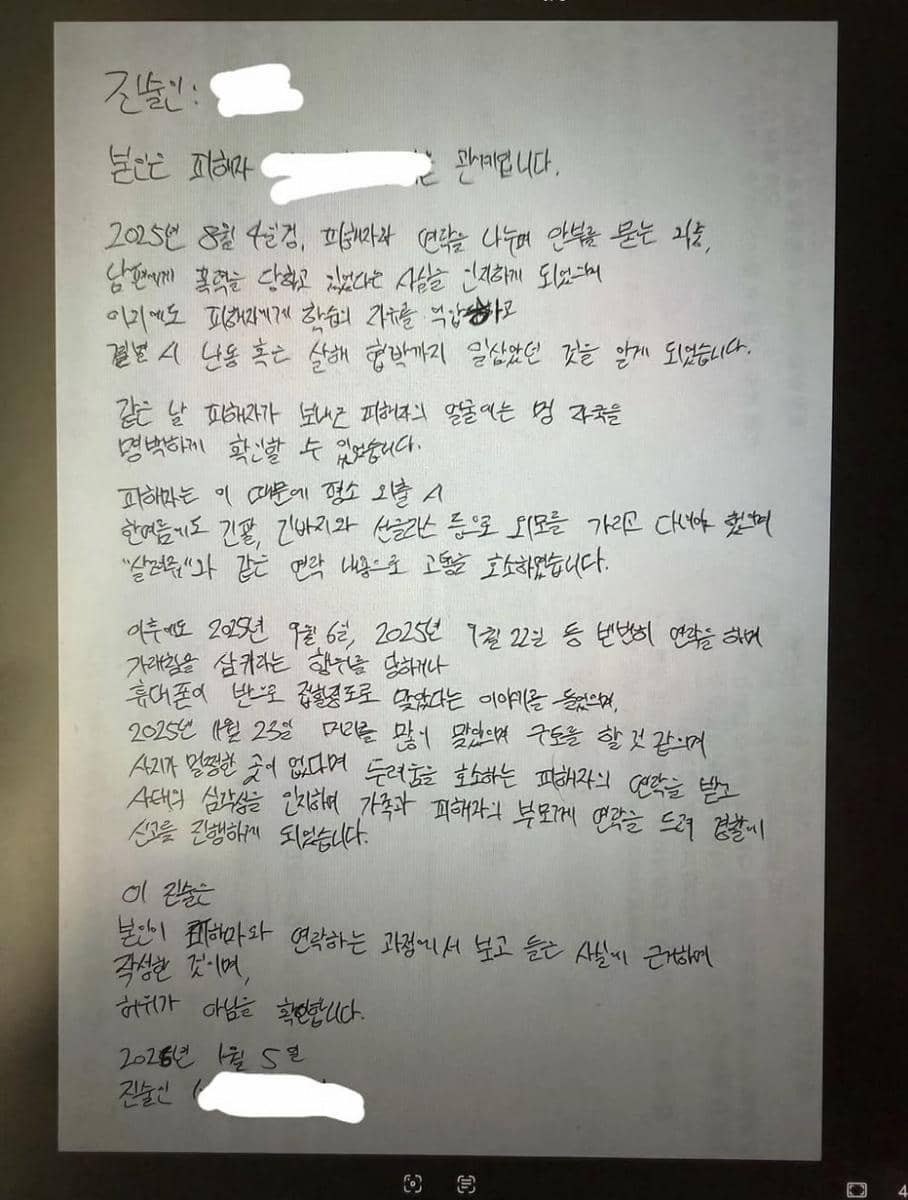 진술인:
본인은 피해자 는 관계입니다.
2025년 8월 4일경, 피해자와 연락을 나누며 안부를 묻는 와중,
남편에게 폭력을 당하고 있었다는 사실을 인지하게 되었으며
이외에도 피해자에게 학습의 자유를 억압하고
결별 시 난동 혹은 살해 협박까지 일삼았던 것을 알게 되었습니다.
같은 날 피해자가 보내온 피해자의 얼굴에는 멍 자국을
명백하게 확인할 수 있었습니다.
피해자는 이 때문에 평소 외출 시
한여름에도 긴팔, 긴바지와 선글라스 등으로 외모를 가리고 다녀야 했으며
"살려줘"와 같은 연락 내용으로 고통을 호소하였습니다.
이후에도 2025년 9월 6일, 2025년 9월 22일 등 빈번히 연락을 하며
가래침을 삼키라는 행위를 당하거나
휴대폰이 반으로 접힐정도로 맞았다는 이야기를 들었으며,
2025년 11월 23일 머리를 많이 맞았으며 구토를 할 것 같으며
사지가 멀쩡한 곳이 없다며 두려움을 호소하는 피해자의 연락을 받고
사태의 심각성을 인지하며 가족과 피해자의 부모께 연락을 드려 경찰에
신고를 진행하게 되었습니다.
이 진술은
본인이 피해자와 연락하는 과정에서 보고 들은 사실에 근거하며
작성한 것이며,
허위가 아님을 확인합니다.
2026년 1월 5일
진술인